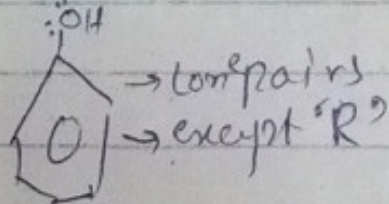 :ÖH
→ lone pairs
→ except "R"